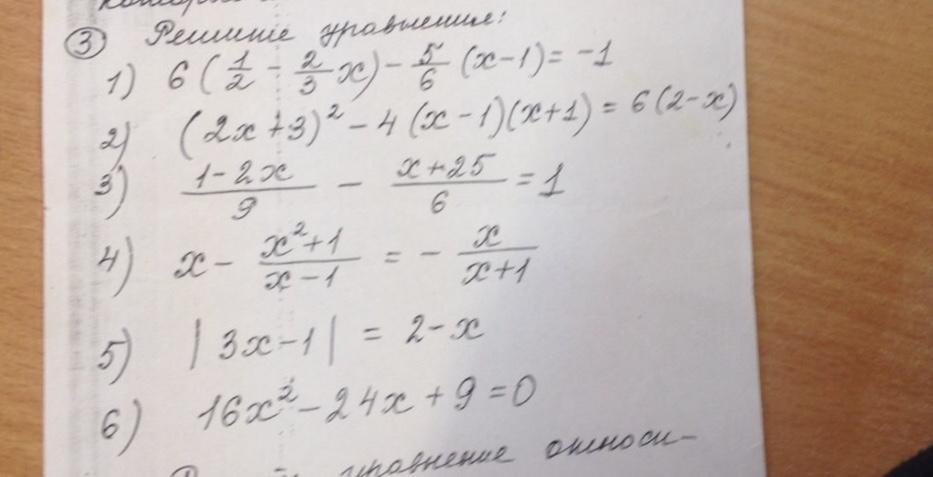 ③ Решите уравнение:
1) 6(1/2 - 2/3 x) - 5/6 (x-1) = -1
2) (2x+3)² - 4(x-1)(x+1) = 6(2-x)
3) (1-2x)/9 - (x+25)/6 = 1
4) x - (x²+1)/(x-1) = - x/(x+1)
5) |3x-1| = 2-x
6) 16x² - 24x + 9 = 0
уравнение относи-